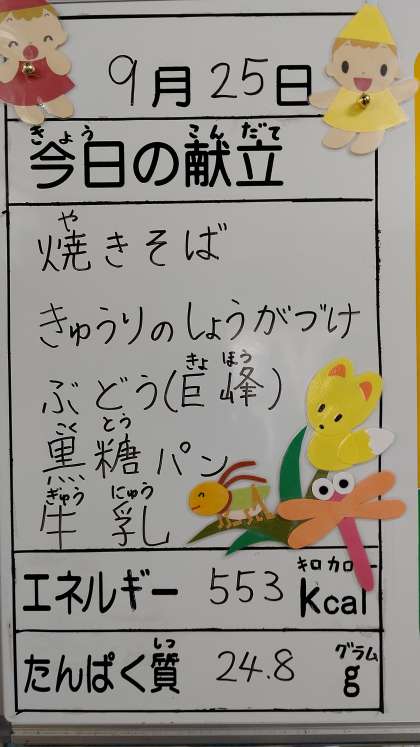 9月25日
きょう こんだて
今日の献立
や
焼きそば
きゅうりのしょうがづけ
きょ ほう
ぶどう(巨峰)
こく とう
黒糖パン
ぎゅう にゅう
牛乳
キロカロリー
エネルギー 553 kcal
しつ グラム
たんぱく質 24.8 g